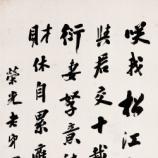 咲我松江
與君交十
衍妻孥意
財休自累
榮光老弟